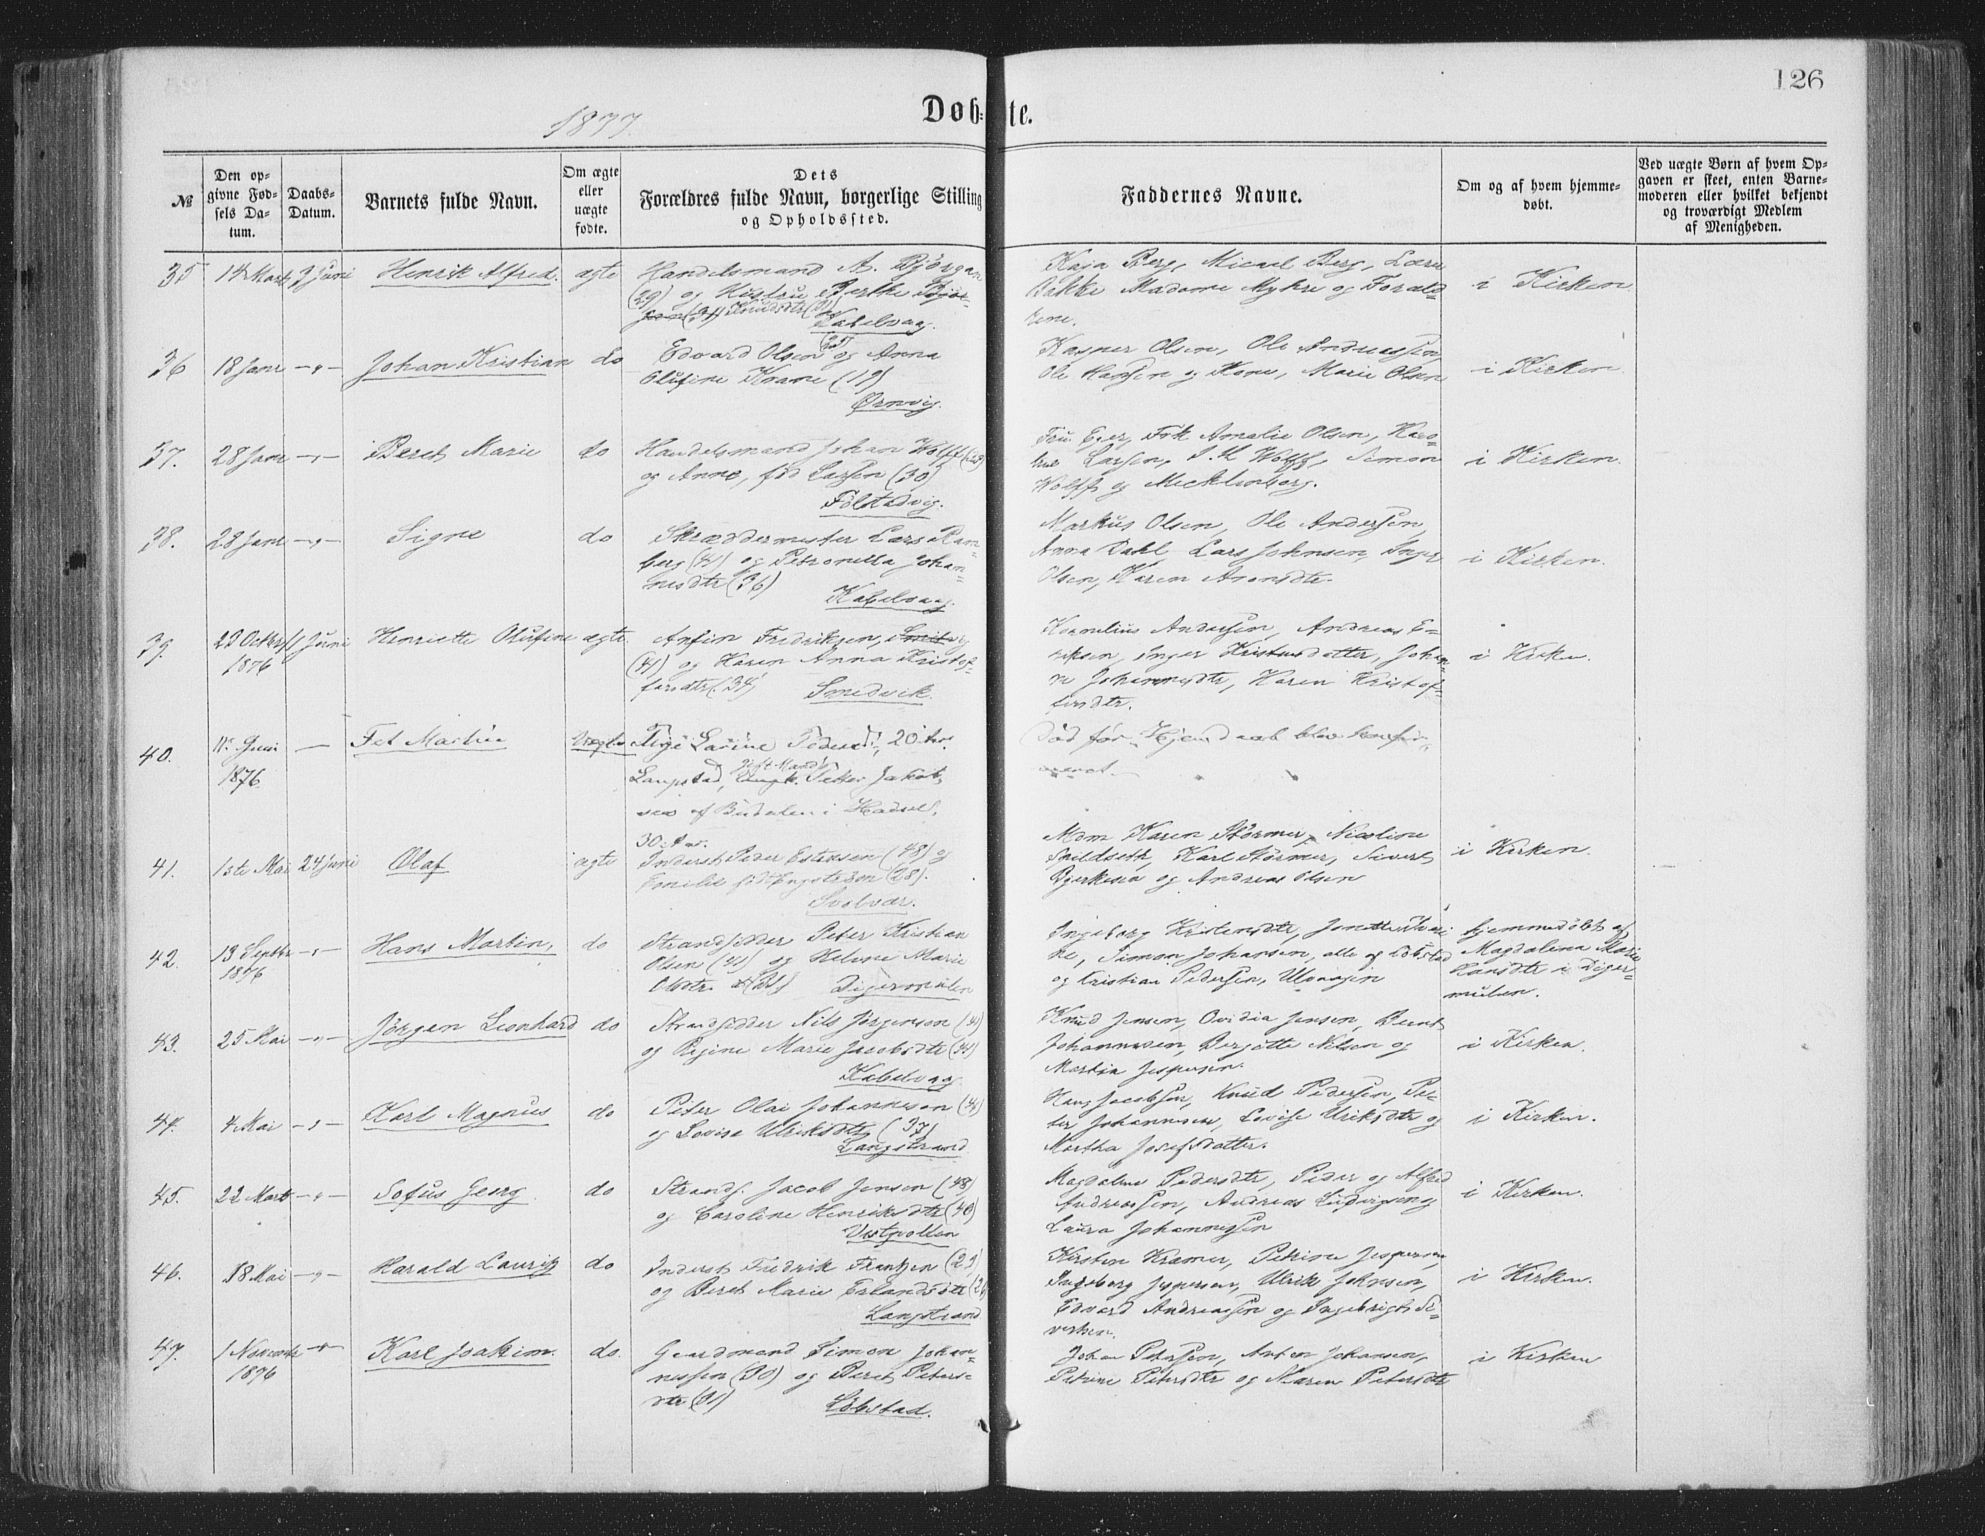 126
1877.
Døb-te.
№
Den opgivne Fødsels Datum.
Daabs-Datum.
Barnets fulde Navn.
Om ægte eller uægte fødte.
Dets Forældres fulde Navn, borgerlige Stilling og Opholdssted.
Faddernes Navne.
Om og af hvem hjemmedøbt.
Ved uægte Børn af hvem Opgaven er skeet, enten Barnemoderen eller hvilket bekjendt og troværdigt Medlem af Menigheden.
35 14 Marts 3 Juni Henrik Alfred. ægte Handelsmand A. Bjørgan
(29) og Hustru Berthe
Knudsdtr
Kabelvaag.
Kaja Berg, Micael Berg,
Bakke Madame Myhre og Foræld-
rene.
i Kirken.
36 18 Janr -"- Johan Kristian do Edvard Olsen og Anna
Olufine Krane (19)
Ørnvig.
Kasper Olsen, Ole Andreassen,
Ole Hansen og Kone, Marie Olsen
i Kirken.
37. 28 Janr -"- Beret Marie do Handelsmand Johan Wolff
og Anne, fød Larsen (30)
Følstadvig.
Fru Eger, Frk Amalie Olsen, Karo-
line Larsen, Wolff, Simon
Wolff og Mecklenborg.
i Kirken.
38. 28 Janr -"- Signe do Skræddermester Lars Ram-
berg (41) og Petronella Johan-
nesdtr (36)
Kabelvaag.
Markus Olsen, Ole Andersen,
Anna Dahl, Lars Johnsen, Inger
Olsen, Karen
i Kirken.
39. 22 Octbr Juni Henriette Olufine ægte. Anfin Fredriksen,
1876
(41) og Karen Anna Kristof-
fersdtr (34) Smedvik.
Kornelius Andersen, Andreas E-
riksen, Inger Kristensdatter, Johan-
ne Johannesdtr, Karen Kristof-
fersdtr.
i Kirken.
40. Juni — Martin Uægte Pige Larine Peders, 20 Aar.
1876.
Langstad, Gift Mand Petter Jakob-
sen af i Hadsel,
30 Aar.
Død før Hjemdaab blev konfir-
meret.
41. 1ste Mai 24 Juni Olaf ægte Inderst Peder Estensen (48) og
Emilie født Engelsen (28).
Svolvær.
Mdm Karen Størmer, Nicoline
Karl Størmer, Sivert
Bjerkeseth og Andreas Olsen
i Kirken.
42. 13 Septbr -"- Hans Martin, do Strandsidder Peter Kristian
1876
Olsen (41) og Helene Marie
Olsdtr. Digermulen
Ingeborg Kristensdtr,
Simon Johansen, alle af
og Kristian Pedersen, Ulvaagen
hjemmedøbt af
Magdalena Marie
Hansdtr i Diger-
mulen.
43. 25 Mai -"- Jørgen Leonhard do Strandsidder Nils Jørgensen
og Regine Marie Jacobsdtr (34)
Kabelvaag
Knud Jensen, Ovidia Jensen, Bernt
Johannesen, Berjitte Nilsen og
Martin Jespersen.
i Kirken.
44. 4 Mai -"- Karl Magnus do Peter Olai Johannesen
og Lovise Ulriksdtr (37)
Langstrand
Hans Jacobsen, Knud Pedersen, Pe-
ter Johannesen, Lovise Ulriksdtr og
Martha Josefsdatter.
i Kirken.
45. 22 Marts -"- Sofus Georg do Strands. Jacob Jensen (48)
og Caroline Henriksdtr (40)
Vestpollen
Magdalene Pedersdtr, Peder og Alfred
Andreassen, Andreas Ludvigsen og
Laura Johannessen
i Kirken.
46. 18 Mai -"- Harald Lauritz do Inderst Fredrik Frantzen
og Beret Marie Erlandsdtr
Langstrand
Kirsten Kramer, Petrine Jespersen,
Ingeborg Jespersen, Ulrik Johnsen,
Edvard Andreassen og Ingebrigt Si-
vertsen.
i Kirken.
47. 1 Novembr -"- Karl Joakim. do. Gaardmand Simon Johan-
1876
nessen (30) og Beret Peters-
dtr (31) Løbstad.
Johan Petersen, Anton Johansen,
Petrine Petersdtr og Maren Petersdtr
i Kirken